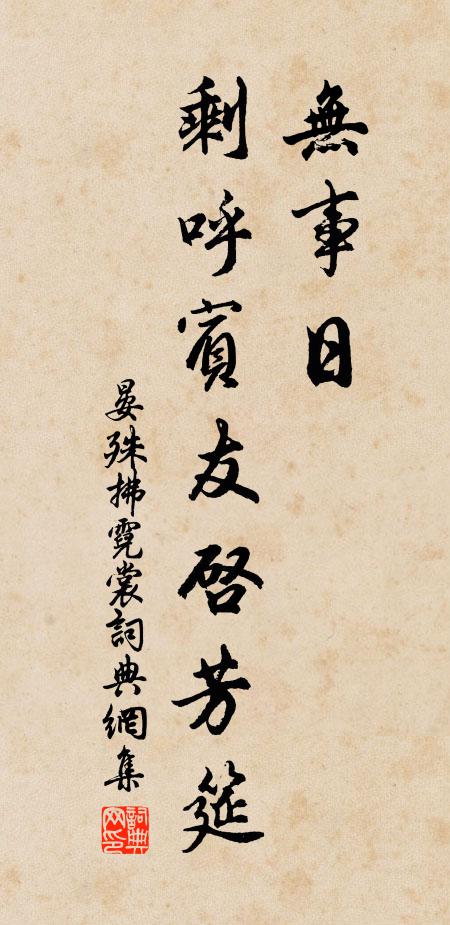 無事日
剩呼賓友啓芳筵
晏殊拂霓裳詞典網集
詞典網印